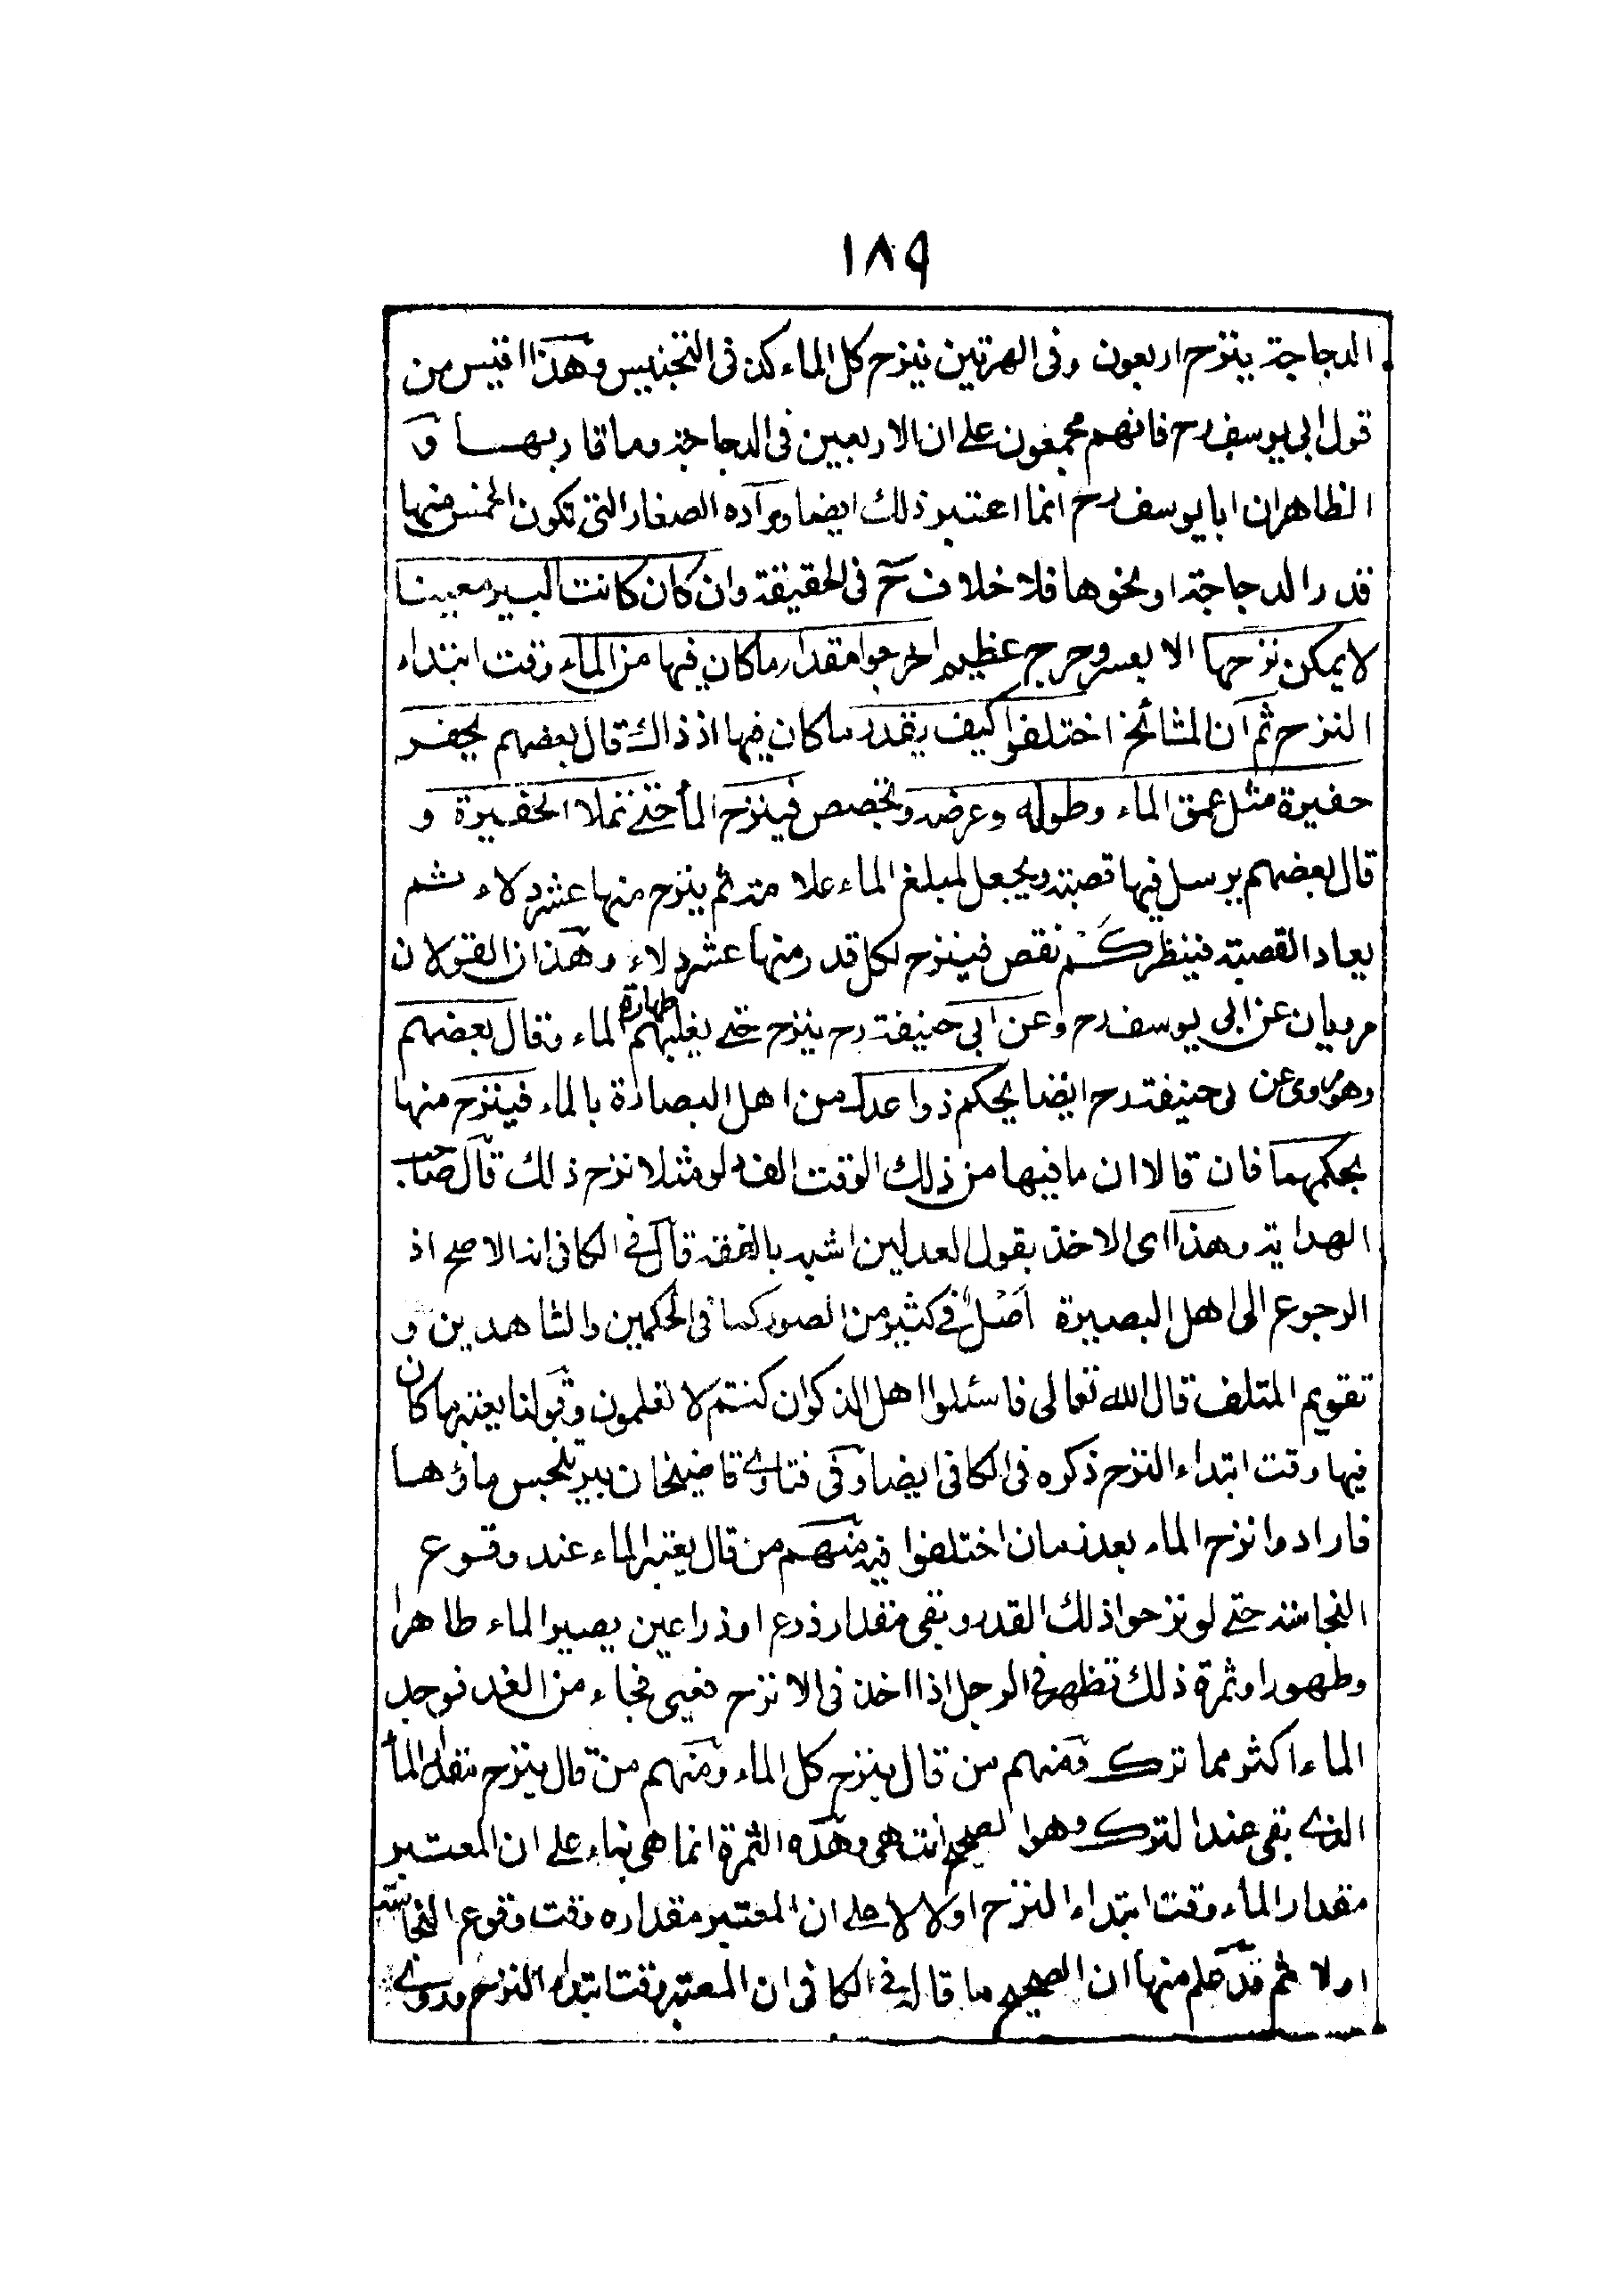 ١٨٩
الدجاجة ينزح اربعون وفى الهرتين ينزح كل الماء كذ فى التجنيس وهذا اقيس من
قول ابى يوسف رح فانهم مجمعون على ان الاربعين فى الدجاجة وما قاربها و
الظاهران ابايوسف رح انما اعتبر ذلك ايضا ومراده الصغار التى تكون الخمس منها
قدر الدجاجة او نحوها فلا خلاف ح فى الحقيقة وان كان كانت البير معينا
لا يمكن نزحها الا بعسر وحرج عظيم اخرجوا مقدار ما كان فيها من الماء وقت ابتداء
النزح ثم ان المشائخ اختلفوا كيف يقدر ما كان فيها اذ ذاك قال بعضهم يحفر
حفيرة مثل عمق الماء وطوله وعرضه وتجصص فينزح الماء حتى تملا الحفيرة و
قال بعضهم يرسل فيها قصبة ويجعل لمبلغ الماء علامة ثم ينزح منها عشر دلاء ثم
يعاد القصبة فينظر كم نقص فينزح لكل قدر منها عشر دلاء وهذان القولان
مرويان عن ابى يوسف رح وعن ابى حنيفة رح ينزح حتى يغلبهم الماء وقال بعضهم
وهو مروى عن ابى حنيفة رح ايضا يحكم ذوا عدل من اهل البصارة بالماء فينزح منها
بحكمهما فان قالا ان ما فيها من ذلك الوقت الف دلو مثلا نزح ذلك قال صاحب
الهداية وهذا اى الاخذ بقول العدلين اشبه بالفقه قال فى الكافى انه الاصح اذ
الرجوع الى اهل البصيرة اصل فى كثير من الصور كما فى الحكمين والشاهدين و
تقويم المتلف قال الله تعالى فاسئلوا اهل الذكر ان كنتم لا تعلمون وقولنا يعتبر ما كان
فيها وقت ابتداء النزح ذكره فى الكافى ايضا وفى فتاوى قاضيخان بير تنجس ماؤها
فارادوا نزح الماء بعد زمان اختلفوا فيه منهم من قال يعتبر الماء عند وقوع
النجاسة حتى لو نزحوا ذلك القدر وبقى مقدار ذرع او ذراعين يصير الماء طاهرا
وطهورا وثمرة ذلك تظهر فى الرجل اذا اخذ فى الانزح فعيى فجاء من الغد فوجد
الماء اكثر مما ترك فمنهم من قال ينزح كل الماء ومنهم من قال ينزح مقدار الماء
الذى بقى عند الترك وهو الصحيح انتهى وهذه الثمرة انما هى بناء على ان المعتبر
مقدار الماء وقت ابتداء النزح اولا لا على ان المعتبر مقداره وقت وقوع النجاسة
اولا ثم قد علم منها ان الصحيح ما قاله فى الكافى ان المعتبر وقت ابتداء النزح وروى